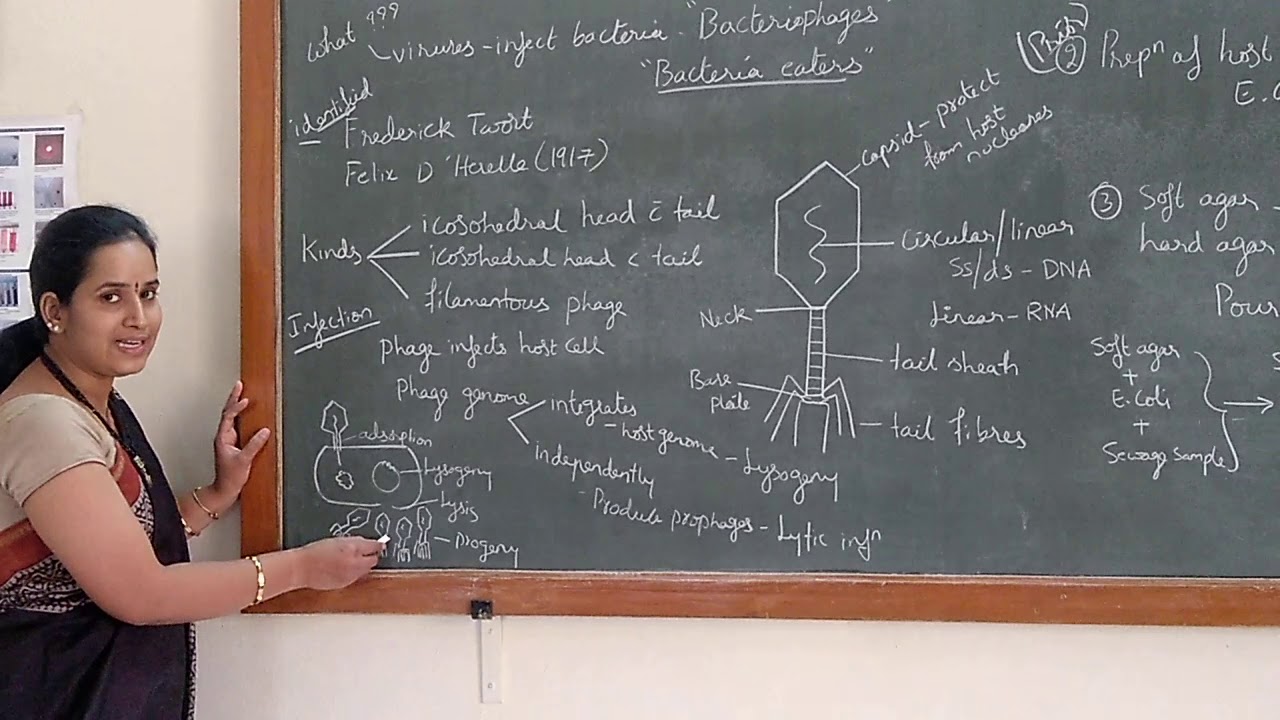 What ???
viruses - infect bacteria - "Bacteriophages"
"Bacteria eaters"
identified
Frederick Twort
Felix D 'Herelle (1917)
Kinds
icosohedral head c̄ tail
icosohedral head c tail
filamentous phage
Infection
Phage infects host cell
Phage genome
integrates
- host genome - Lysogeny
independently
- Produce prophages - Lytic infn
adsorption
Lysogeny
Lysis
Progeny
capsid - protect
from host
nucleases
Circular/linear
SS/ds - DNA
Linear - RNA
Neck
tail sheath
Base
plate
tail fibres
② Prepn of host
E.C
③ Soft agar -
hard agar
Pour
Soft agar
+
E.Coli
+
Sewage Sample